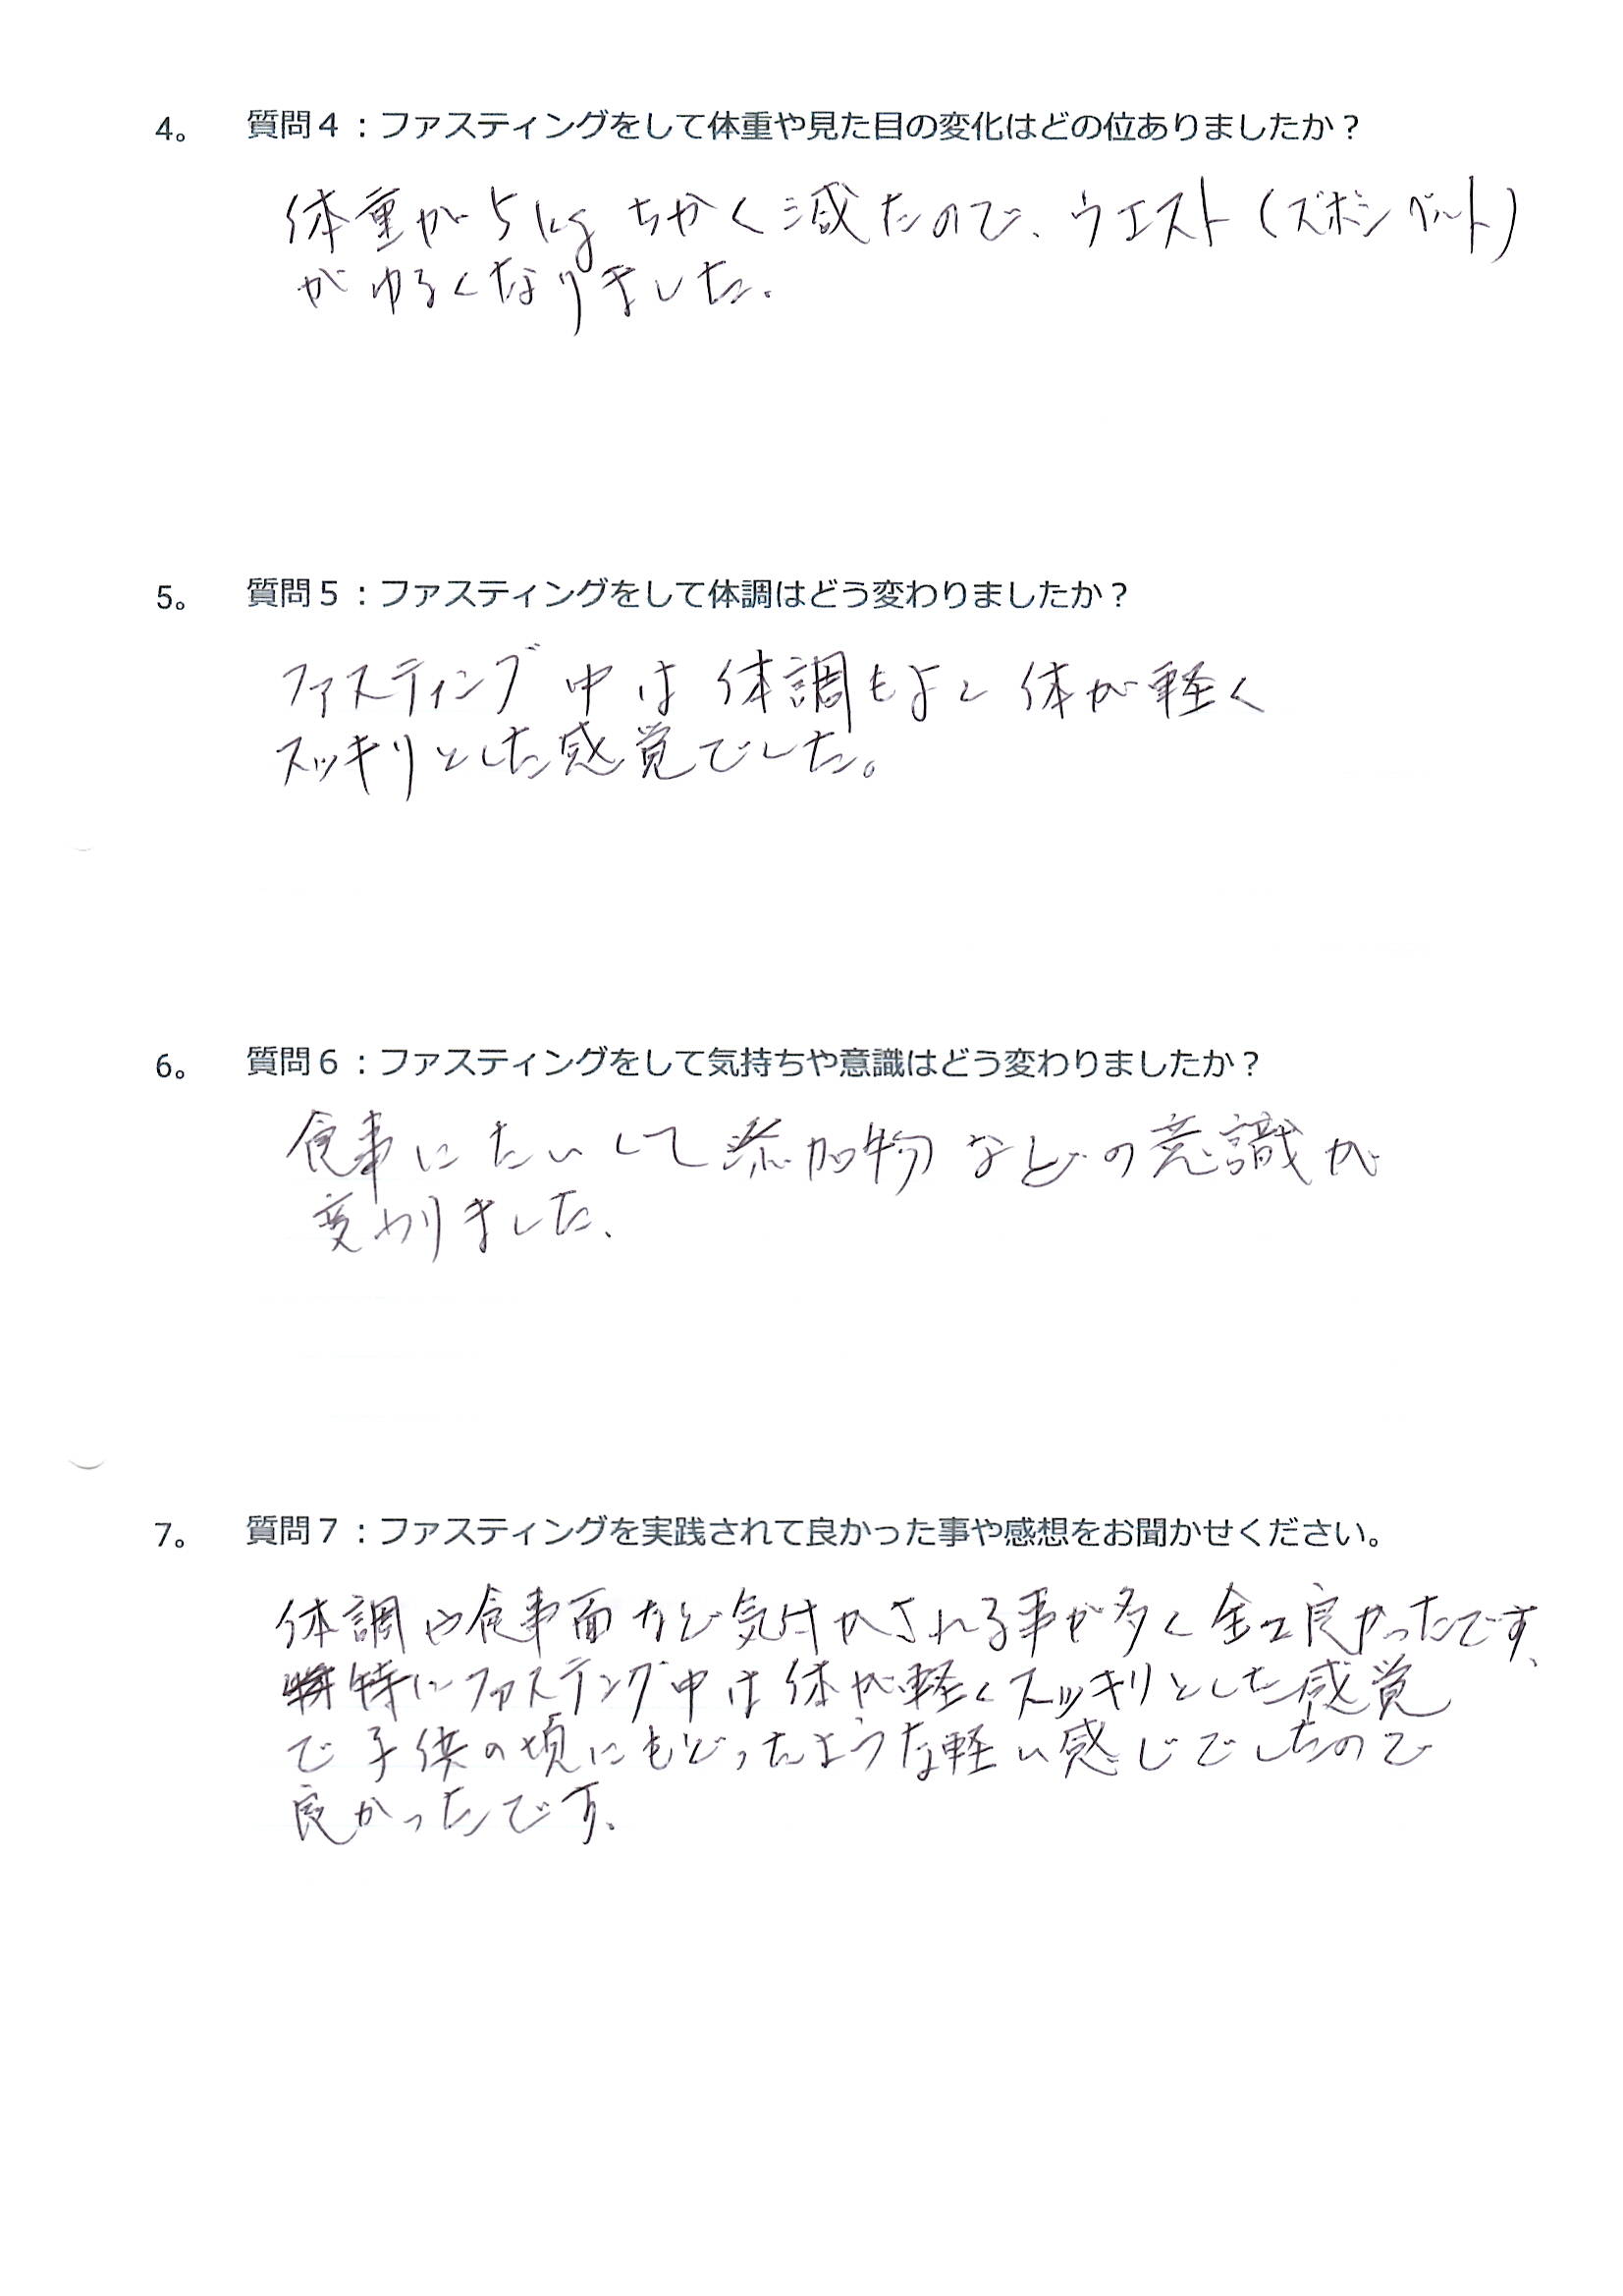 4。 質問４：ファスティングをして体重や見た目の変化はどの位ありましたか？
体重が5kgちかく減たので、ウエスト(ズボンベルト)
がゆるくなりました。
5。 質問５：ファスティングをして体調はどう変わりましたか？
ファスティング中は体調もよく体が軽く
スッキリとした感覚でした。
6。 質問６：ファスティングをして気持ちや意識はどう変わりましたか？
食事にたいして添加物などの意識が
変わりました、
7。 質問７：ファスティングを実践されて良かった事や感想をお聞かせください。
体調や食事面など気付かされる事が多く 良かったです、
特にファスティング中は体が軽くスッキリとした感覚
で子供の頃にもどったような軽い感じでしたので
良かったです、